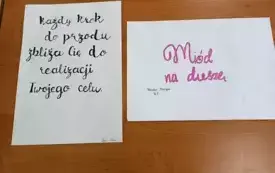 Każdy krok
do przodu
zbliża Cię do
realizacji
Twojego celu.
Miód
na duszę